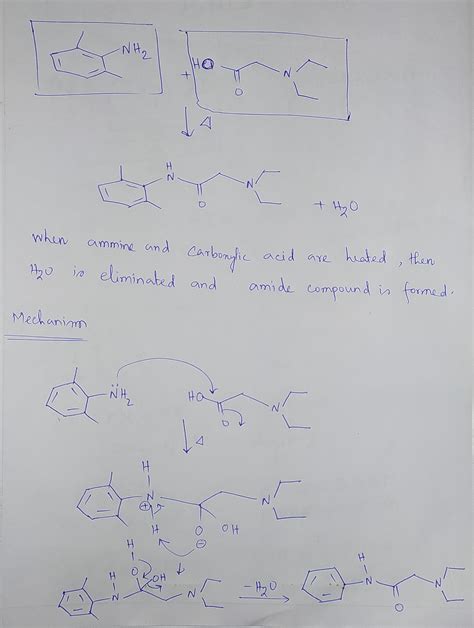 NH2
+ HO
O
N
Δ
H
N
O
N
+ H2O
When ammine and carboxylic acid are heated, then
H2O is eliminated and amide compound is formed.
Mechanism
NH2 HO
O
N
Δ
H
N
⊕
H
O
⊖
OH
N
H
H
N
O
OH
N
-H2O
H
N
O
N